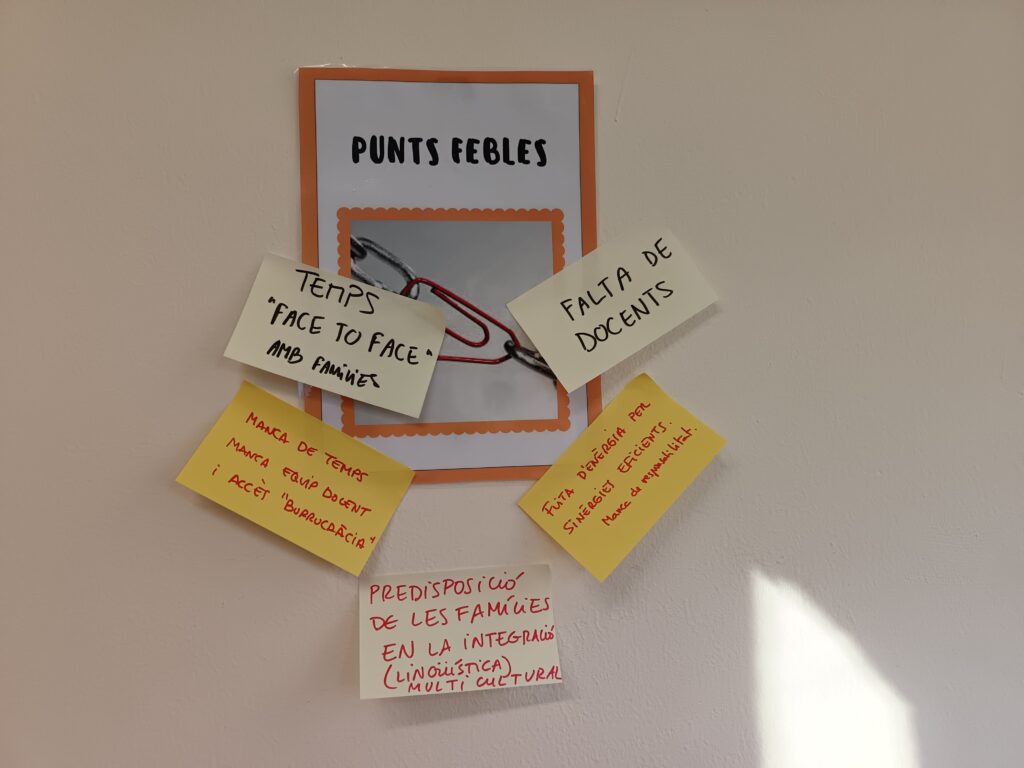 PUNTS FEBLES
TEMPS
"FACE TO FACE"
AMB FAMÍLIES
FALTA DE
DOCENTS
MANCA DE TEMPS
MANCA EQUIP DOCENT
I ACCÈT "BURRUCRÀCIA"
FUTA D'ENERGIA PER
SINÈRGIES EFICIENTS.
Manca de responsabilitat.
PREDISPOSICIÓ
DE LES FAMÍLIES
EN LA INTEGRACIÓ
(LINGÜÍSTICA)
MULTICULTURAL